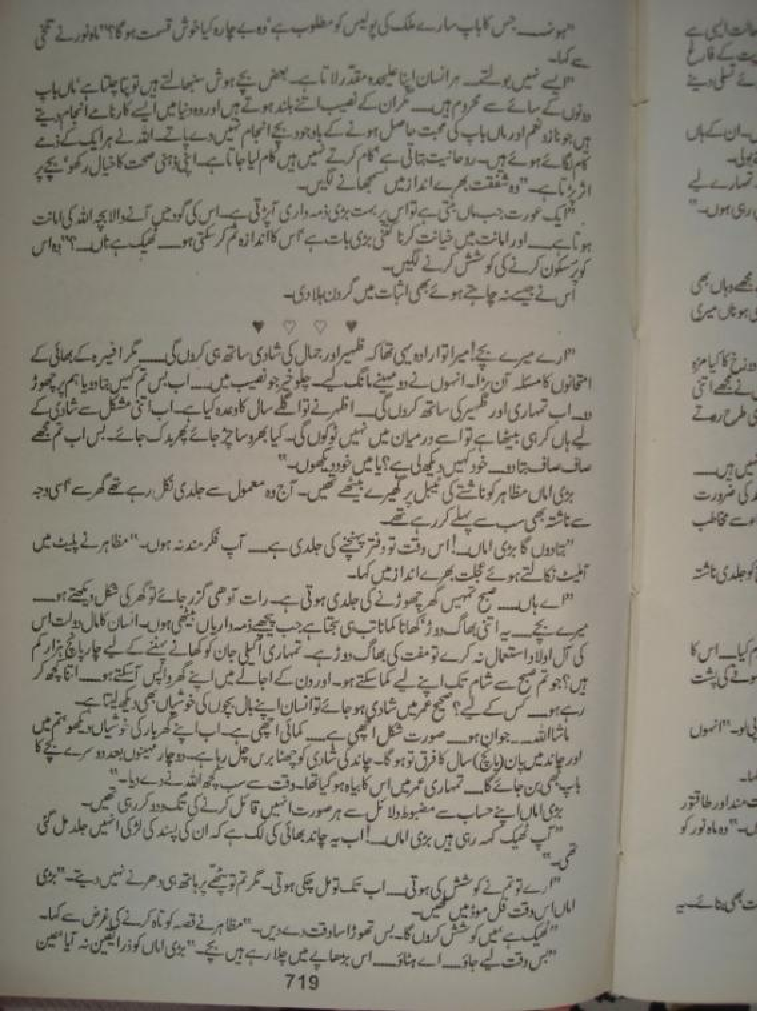 "ہونہہ۔ جس کا باپ سارے ملک کی پولیس کو مطلوب ہے، وہ بے چارہ کیا خوش قسمت ہوگا؟" ماہ نور نے تلخی
سے کہا۔
"ایسے نہیں بولتے۔ ہر انسان اپنا علیحدہ مقدر لاتا ہے۔ بعض بچے ہوش سنبھالتے ہیں تو پتا چلتا ہے، ماں باپ
دونوں کے سائے سے محروم ہیں۔ مگر ان کے نصیب اتنے بلند ہوتے ہیں اور وہ دنیا میں ایسے کارنامے انجام دیتے
ہیں جو نازو نعم اور ماں باپ کی محبت حاصل ہونے کے باوجود بچے انجام نہیں دے پاتے۔ اللہ نے ہر ایک کے ذمے
کام لگائے ہوئے ہیں۔ روحانیت بتاتی ہے، کام کرتے نہیں ہیں، کام لیا جاتا ہے۔ اپنی ذہنی صحت کا خیال رکھو، بچے پر
اثر پڑتا ہے۔" وہ شفقت بھرے انداز میں سمجھانے لگیں۔
"ایک عورت جب ماں بنتی ہے تو اس پر بہت بڑی ذمہ داری آ پڑتی ہے۔ اس کی گود میں آنے والا بچہ اللہ کی امانت
ہوتا ہے۔ اور امانت میں خیانت کرنا کتنی بڑی بات ہے، اس کا اندازہ تم کر سکتی ہو۔ ٹھیک ہے ناں۔؟" وہ اس
کو پرسکون کرنے کی کوشش کرنے لگیں۔
اس نے جیسے نہ چاہتے ہوئے بھی اثبات میں گردن ہلا دی۔
♥ ♡ ♡ ♥
"ارے میرے بچے! میرا تو ارادہ یہی تھا کہ ظہیر اور جمال کی شادی ساتھ ہی کروں گی۔ مگر افیرہ کے بھائی کے
امتحانوں کا مسئلہ آن پڑا۔ انہوں نے دو مہینے مانگ لیے۔ چلو خیر جو نصیب میں۔ اب بس تم کہیں بتا دو یا ہم پر چھوڑ
دو۔ اب تمہاری اور ظہیر کی ساتھ کروں گی۔ اظہر نے تو اگلے سال کا وعدہ کیا ہے۔ اب اتنی مشکل سے شادی کے
لیے ہاں کر ہی بیٹھا ہے تو اسے درمیان میں نہیں ٹوکوں گی۔ کیا بھروسا چڑ جائے پھر بدک جائے۔ بس اب تم مجھے
صاف صاف بتا دو۔ خود کہیں دیکھ لی ہے؟ یا میں خود دیکھوں۔"
بڑی اماں مظاہر کو ناشتے کی ٹیبل پر گھیرے بیٹھے تھیں۔ آج وہ معمول سے جلدی نکل رہے تھے گھر سے، اسی وجہ
سے ناشتہ بھی سب سے پہلے کر رہے تھے۔
"بتا دوں گا بڑی اماں۔! اس وقت تو دفتر پہنچنے کی جلدی ہے۔ آپ فکر مند نہ ہوں۔" مظاہر نے پلیٹ میں
آملیٹ نکالتے ہوئے عجلت بھرے انداز میں کہا۔
"اے ہاں۔ صبح تمہیں گھر چھوڑنے کی جلدی ہوتی ہے۔ رات آدھی گزر جائے تو گھر کی شکل دیکھتے ہو۔
میرے بچے۔ یہ اتنی بھاگ دوڑ، کھانا کمانا تب ہی سجتا ہے جب پیچھے ذمہ داریاں بیٹھی ہوں۔ انسان کا مال دولت اس
کی آل اولاد استعمال نہ کرے تو مفت کی بھاگ دوڑ ہے۔ تمہاری اکیلی جان کو کھانے پہننے کے لیے چار پانچ ہزار کم
ہیں؟ جو تم صبح سے شام تک اپنے لیے کما سکتے ہو۔ اور دن کے اجالے میں اپنے گھر واپس آ سکتے ہو۔ اتنا کچھ کر
رہے ہو۔ کس کے لیے؟ صحیح عمر میں شادی ہو جائے تو انسان اپنے بال بچوں کی خوشیاں بھی دیکھ لیتا ہے۔
ماشاء اللہ۔ جوان ہو۔ صورت شکل اچھی ہے۔ کمائی اچھی ہے۔ اب اپنے گھر بار کی خوشیاں دیکھو، تم میں
اور چاند میں یہاں (پانچ) سال کا فرق تو ہوگا۔ چاند کی شادی کو چھٹا برس چل رہا ہے۔ دو چار مہینوں بعد دوسرے بچے کا
باپ بھی بن جائے گا۔ تمہاری عمر میں اس کا بیاہ ہو گیا تھا۔ وقت سے سب کچھ اللہ نے دے دیا۔"
بڑی اماں اپنے حساب سے مضبوط دلائل سے ہر صورت انہیں قائل کرنے کی تگ و دو کر رہی تھیں۔
"آپ ٹھیک کہہ رہی ہیں بڑی اماں۔! اب یہ چاند بھائی کی لک ہے کہ ان کی پسند کی لڑکی انہیں جلد مل گئی
تھی۔"
"ارے تو تم نے کوشش کی ہوتی۔ اب تک تو مل چکی ہوتی۔ مگر تم تو پٹھے پر ہاتھ ہی دھرنے نہیں دیتے۔" بڑی
اماں اس وقت فل موڈ میں تھیں۔
"ٹھیک ہے، میں کوشش کروں گا۔ بس تھوڑا سا وقت دے دیں۔" مظاہر نے قصہ کوتاہ کرنے کی غرض سے کہا۔
"بس وقت لیے جاؤ۔ اے ہٹاؤ۔ اس بڑھاپے میں چلا رہے ہیں بچے۔" بڑی اماں کو ذرا یقین نہ آیا، عین
719